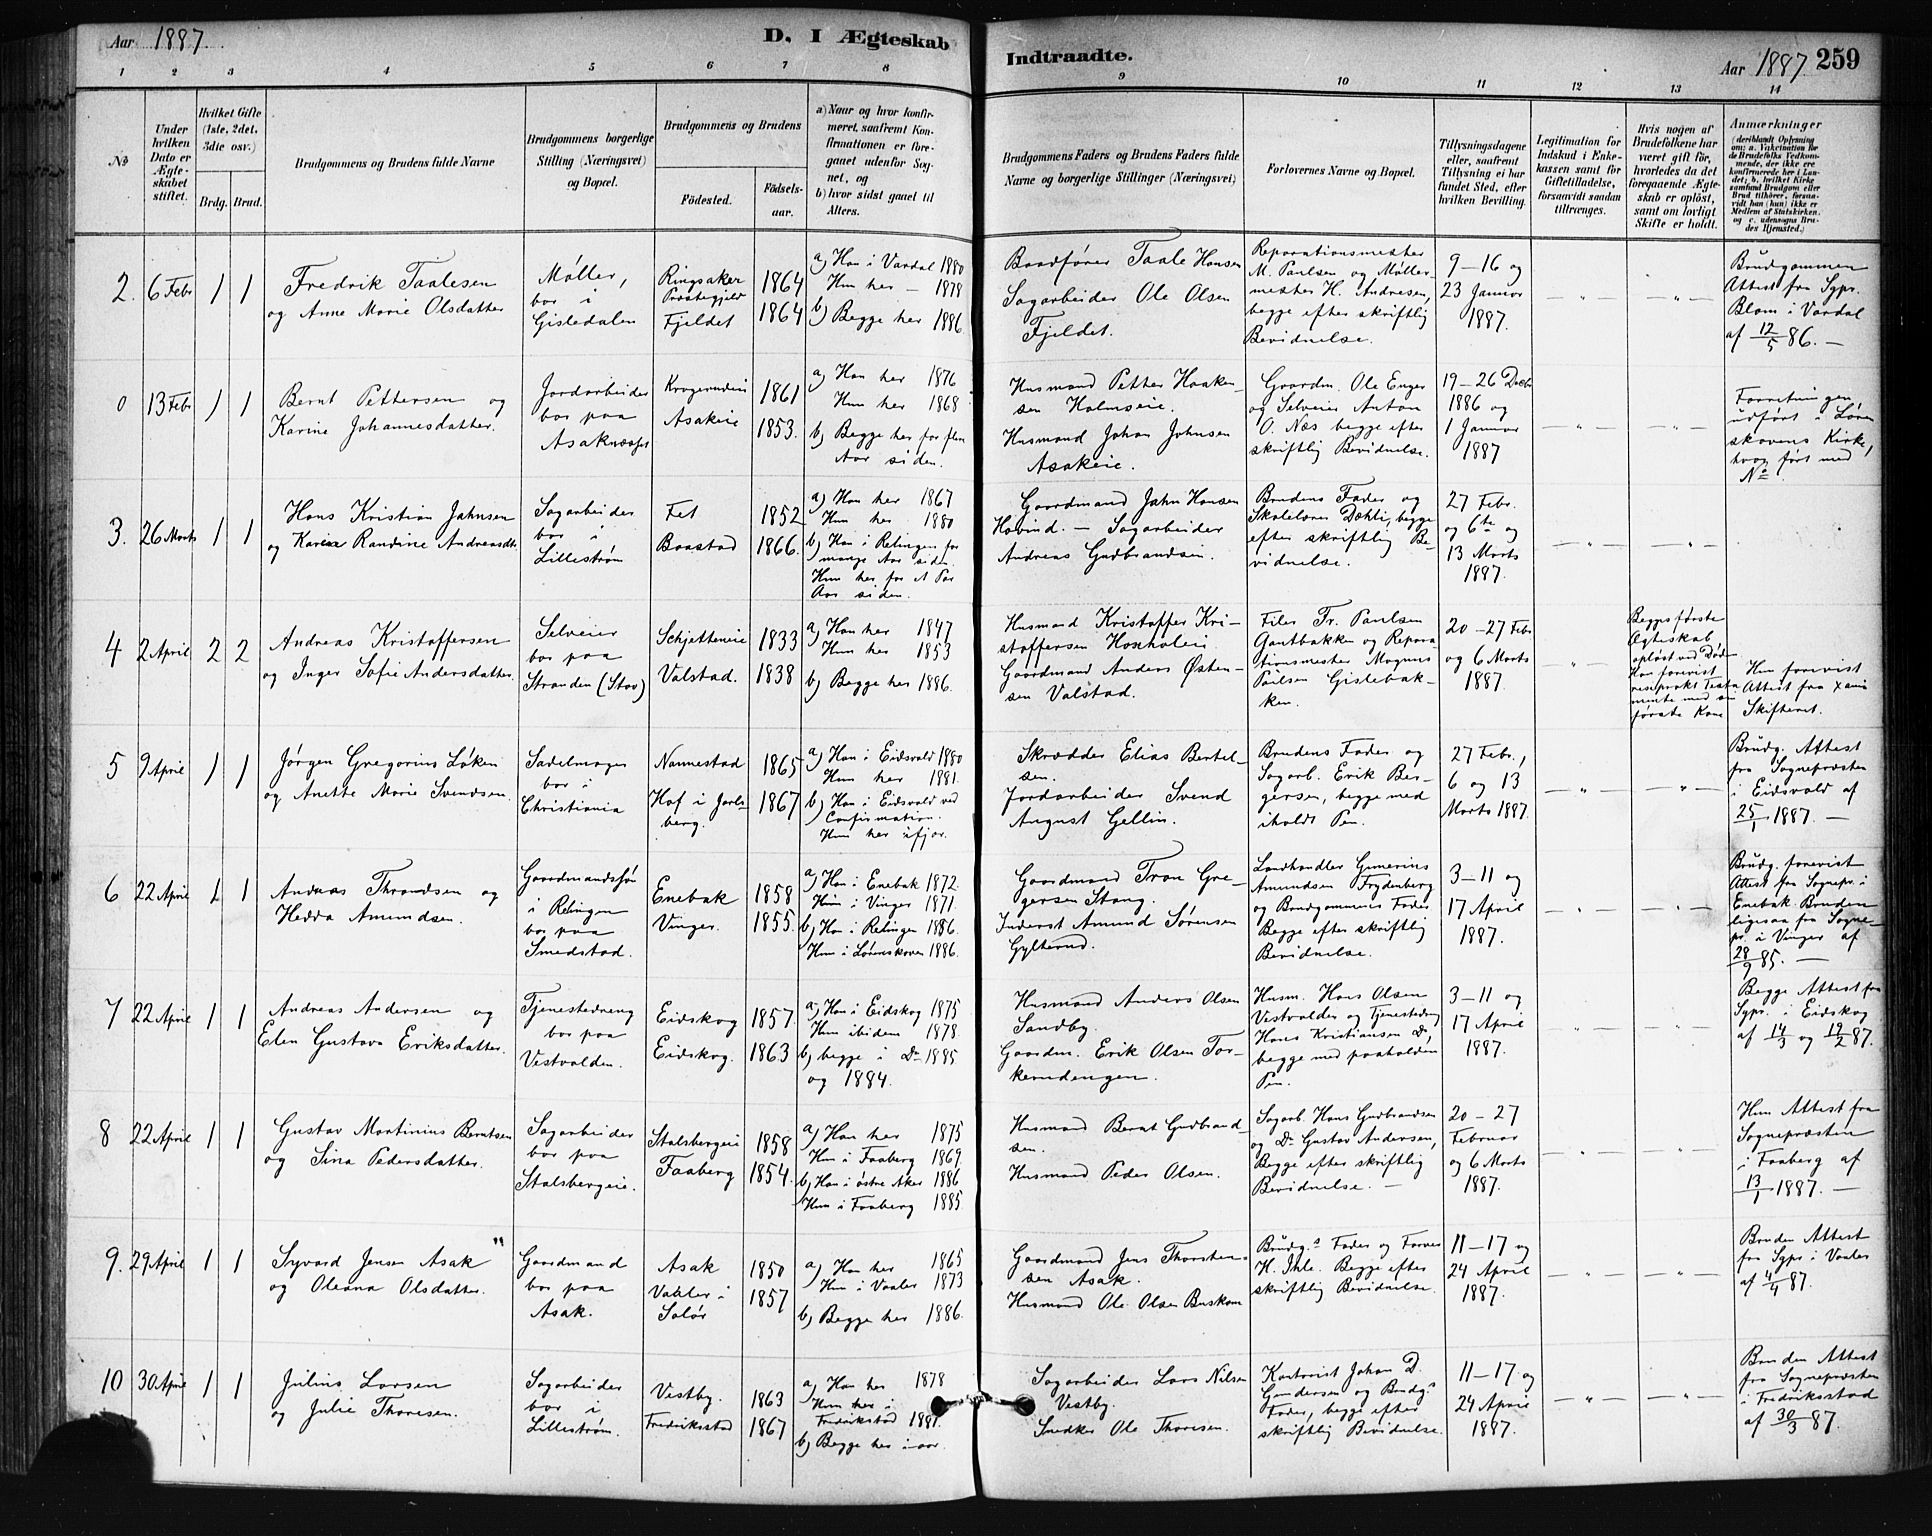 Aar 1887.
D. I Ægteskab
Indtraadte.
Aar 1887 259
1 2 3 4 5 6 7 8 9 10 11 12 13 14
No
Under hvilken Dato er Ægteskabet stiftet.
Hvilket Gifte (1ste, 2det, 3die osv.)
Brdg. Brud.
Brudgommens og Brudens fulde Navne
Brudgommens borgerlige Stilling (Næringsvei) og Bopæl.
Brudgommens og Brudens
Födested.
Födsels-aar.
a) Naar og hvor konfirmeret, saafremt Konfirmationen er foregaaet udenfor Sognet, og
b) hvor sidst gaaet til Alters.
Brudgommens Faders og Brudens Faders fulde Navne og borgerlige Stillinger (Næringsvei)
Forlovernes Navne og Bopæl.
Tillysningsdagene eller, saafremt Tillysning ei har fundet Sted, efter hvilken Bevilling.
Legitimation for Indskud i Enkekassen samt for Giftetilladelse, forsaavidt saadan tiltrænges.
Hvis nogen af Brudefolkene har været gift för, hvorledes da det foregaaende Ægteskab er oplöst, samt om lovligt Skifte er holdt.
Anmærkninger
(deriblandt Oplysning om: a. Vakcination for de Brudefolks Vedkommende, der ikke ere konfirmerede her i Landet; b. hvilket Kirkesamfund Brudgom eller Brud tilhörer, forsaavidt han (hun) ikke er Medlem af Statskirken, og c. udensogns Brudes Hjemsted.)
2. 6 Febr 1 1
Fredrik Taalesen
og Anne Marie Olsdatter
Møller,
bor i
Gisledalen
Ringsaker
Præstegjeld
Fjeldet
1864
1864
a) Han i Vardal 1880
Hun her — 1878
b) Begge her 1886.
Baadfører Taale Hansen
Sagarbeider Ole Olsen
Fjeldet.
Reparationsmester
M. Paulsen og Møller-
mester H. Andresen,
begge efter skriftlig
Bevidnelse.
9-16 og
23 Januar
1887.
Brudgommen
Attest fra Sgpr.
Blom i Vardal
af 12/5 86. —
0 13 Febr 1 1
Bernt Pettersen og
Karine Johannesdatter.
Jordarbeider
bor paa
Asaknæsset
Krogerudeie
Asakeie
1861
1853.
a) Han her 1876
Hun her 1868
b) Begge her for flere
Aar siden.
Husmand Petter Haaken-
sen Holmseie.
Husmand Johan Johnsen
Asakeie.
Gaardm. Ole Enger
og Selveier Anton
O. Næs begge efter
skriftlig Bevidnelse.
19-26 Decbr
1886 og
1 Januar
1887
Forretningen
udført i Løren
skovens Kirke,
hvor ført med
No.
3. 26 Marts 1 1
Hans Kristian Jahnsen
og Karen Randine Andreasdtr
Sagarbeider
bor i
Lillestrøm
Fet
Baastad
1852
1866.
a) Han her 1867
Hun her 1880
b) Han i Relingen for
mange Aar siden.
Hun her for et Par
Aar siden.
Gaardmand Jahn Hansen
Hovind. — Sagarbeider
Andreas Gudbrandsen.
Brudens Fader og
Skolelærer Dæhli, begge
efter skriftlig Be-
vidnelse.
27 Febr.
og 6te og
13 Marts
1887.
4 2 April 2 2
Andreas Kristoffersen
og Inger Sofie Andersdatter.
Selveier
bor paa
Stranden (Stav)
Schjetteneie
Valstad.
1833
1838
a) Han her 1847
Hun her 1853
b) Begge her 1886.
Husmand Kristoffer Kri-
stoffersen Honholeie
Gaardmand Anders Østen-
sen Valstad.
Filer Fr. Paulsen
Gantbakken og Repara
tionsmester Magnus
Paulsen Gislebak-
ken.
20-27 Febr
og 6 Marts
1887.
Begges første
Ægteskab
opløst ved Døden
Han forevist
resiprokt Testa
mente med sin
første Kone
Hun forevist
Attest fra Xania
Skifteret.
5 9 April 1 1
Jørgen Gregorius Løken
og Anette Marie Svendsen.
Sadelmager
bor i
Christiania
Nannestad
Hof i Jarls-
berg.
1865
1867
a) Han i Eidsvold 1880
Hun her 1881.
b) Han i Eidsvold ved
Confirmation.
Hun her ifjor.
Skrædder Elias Bertel-
sen.
Jordarbeider Svend
August Gellin.
Brudens Fader og
Sagarb. Erik Ber-
gersen, begge med
iholdt Pen.
27 Febr.,
6 og 13
Marts 1887.
Brudg. Attest
fra Sognepræsten
i Eidsvold af
25/1 1887. —
6 22 April 1 1
Andreas Throndsen og
Hedda Amundsen.
Gaardmandssøn
i Relingen
bor paa
Smedstad.
Enebak
Vinger.
1858
1855.
a) Han i Enebak 1872.
Hun i Vinger 1871.
b) Han i Relingen 1886.
Hun i Lørenskoven 1886.
Gaardmand Tron Gre-
gersen Stang.
Inderst Amund Sørensen
Gylterud.
Landhandler Gunerius
Amundsen Frydenberg
og Brudgommens Fader
Begge efter skriftlig
Bevidnelse.
3-11 og
17 April
1887.
Brudg. forevist
Attest fra Sognepr. i
Enebak. Bruden
ligesaa fra Sogne-
pr. i Vinger af
28/9 85. —
7 22 April 1 1
Andreas Andersen og
Elen Gustava Eriksdatter.
Tjenestedreng
bor paa
Vestvolden.
Eidskog
Eidskog.
1857
1863
a) Han i Eidskog 1875
Hun ibidem 1878
b) begge i Do 1885
og 1884.
Husmand Anders Olsen
Sandby.
Gaardm. Erik Olsen Tor-
kerudengen.
Husm. Hans Olsen
Vestvolden og Tjenestedreng
Hans Kristiansen Do,
begge med paaholden
Pen.
3-11 og
17 April
1887.
Begge Attest fra
Sgpr. i Eidskog
af 14/3 og 12/2 87.
8 22 April 1 1
Gustav Martinius Berntsen
og Sina Pedersdatter.
Sagarbeider
bor paa
Stalsbergeie.
Stalsbergeie
Faaberg
1858
1854.
a) Han her 1875
Hun i Faaberg 1869
b) Han i østre Aker 1886
Hun i Faaberg 1885
Husmand Bernt Gudbrand-
sen.
Husmand Peder Olsen.
Sagarb. Hans Gudbrandsen
og Do Gustav Andersen,
Begge efter skriftlig
Bevidnelse. —
20-27
Februar
og 6 Marts
1887.
Hun Attest fra
Sognepræsten
i Faaberg af
13/1 1887. —
9. 29 April 1 1
Syvard Jensen Asak
og Oleana Olsdatter.
Gaardmand
bor paa
Asak.
Asak
Vaaler i
Solør
1850
1857
a) Han her 1865
Hun i Vaaler 1873
b) Begge her 1886.
Gaardmand Jens Thorsten-
sen Asak.
Husmand Ole Olsen Buskom
Brudg.s Fader og Farver
H. Ihle. Begge efter
skriftlig Bevidnelse.
11-17 og
24 April
1887.
Bruden Attest
fra Sgpr. i Vaaler
af 4/4 87.
10 30 April 1 1
Julius Larsen
og Julie Thoresen.
Sagarbeider
bor i
Lillestrøm.
Vestby.
Fredriksstad
1863
1867
a) Han her 1878
Hun her i
Fredrikstad 1881.
b) Begge her iaar.
Sagarbeider Lars Nilsen
Vestby.
Snedker Ole Thoresen.
Kontorist Johan D.
Gundersen og Brudg.s
Fader, begge efter
skriftlig Bevidnelse.
11-17 og
24 April
1887.
Bruden Attest
fra Sognepræsten
i Fredriksstad
af 30/3 87.